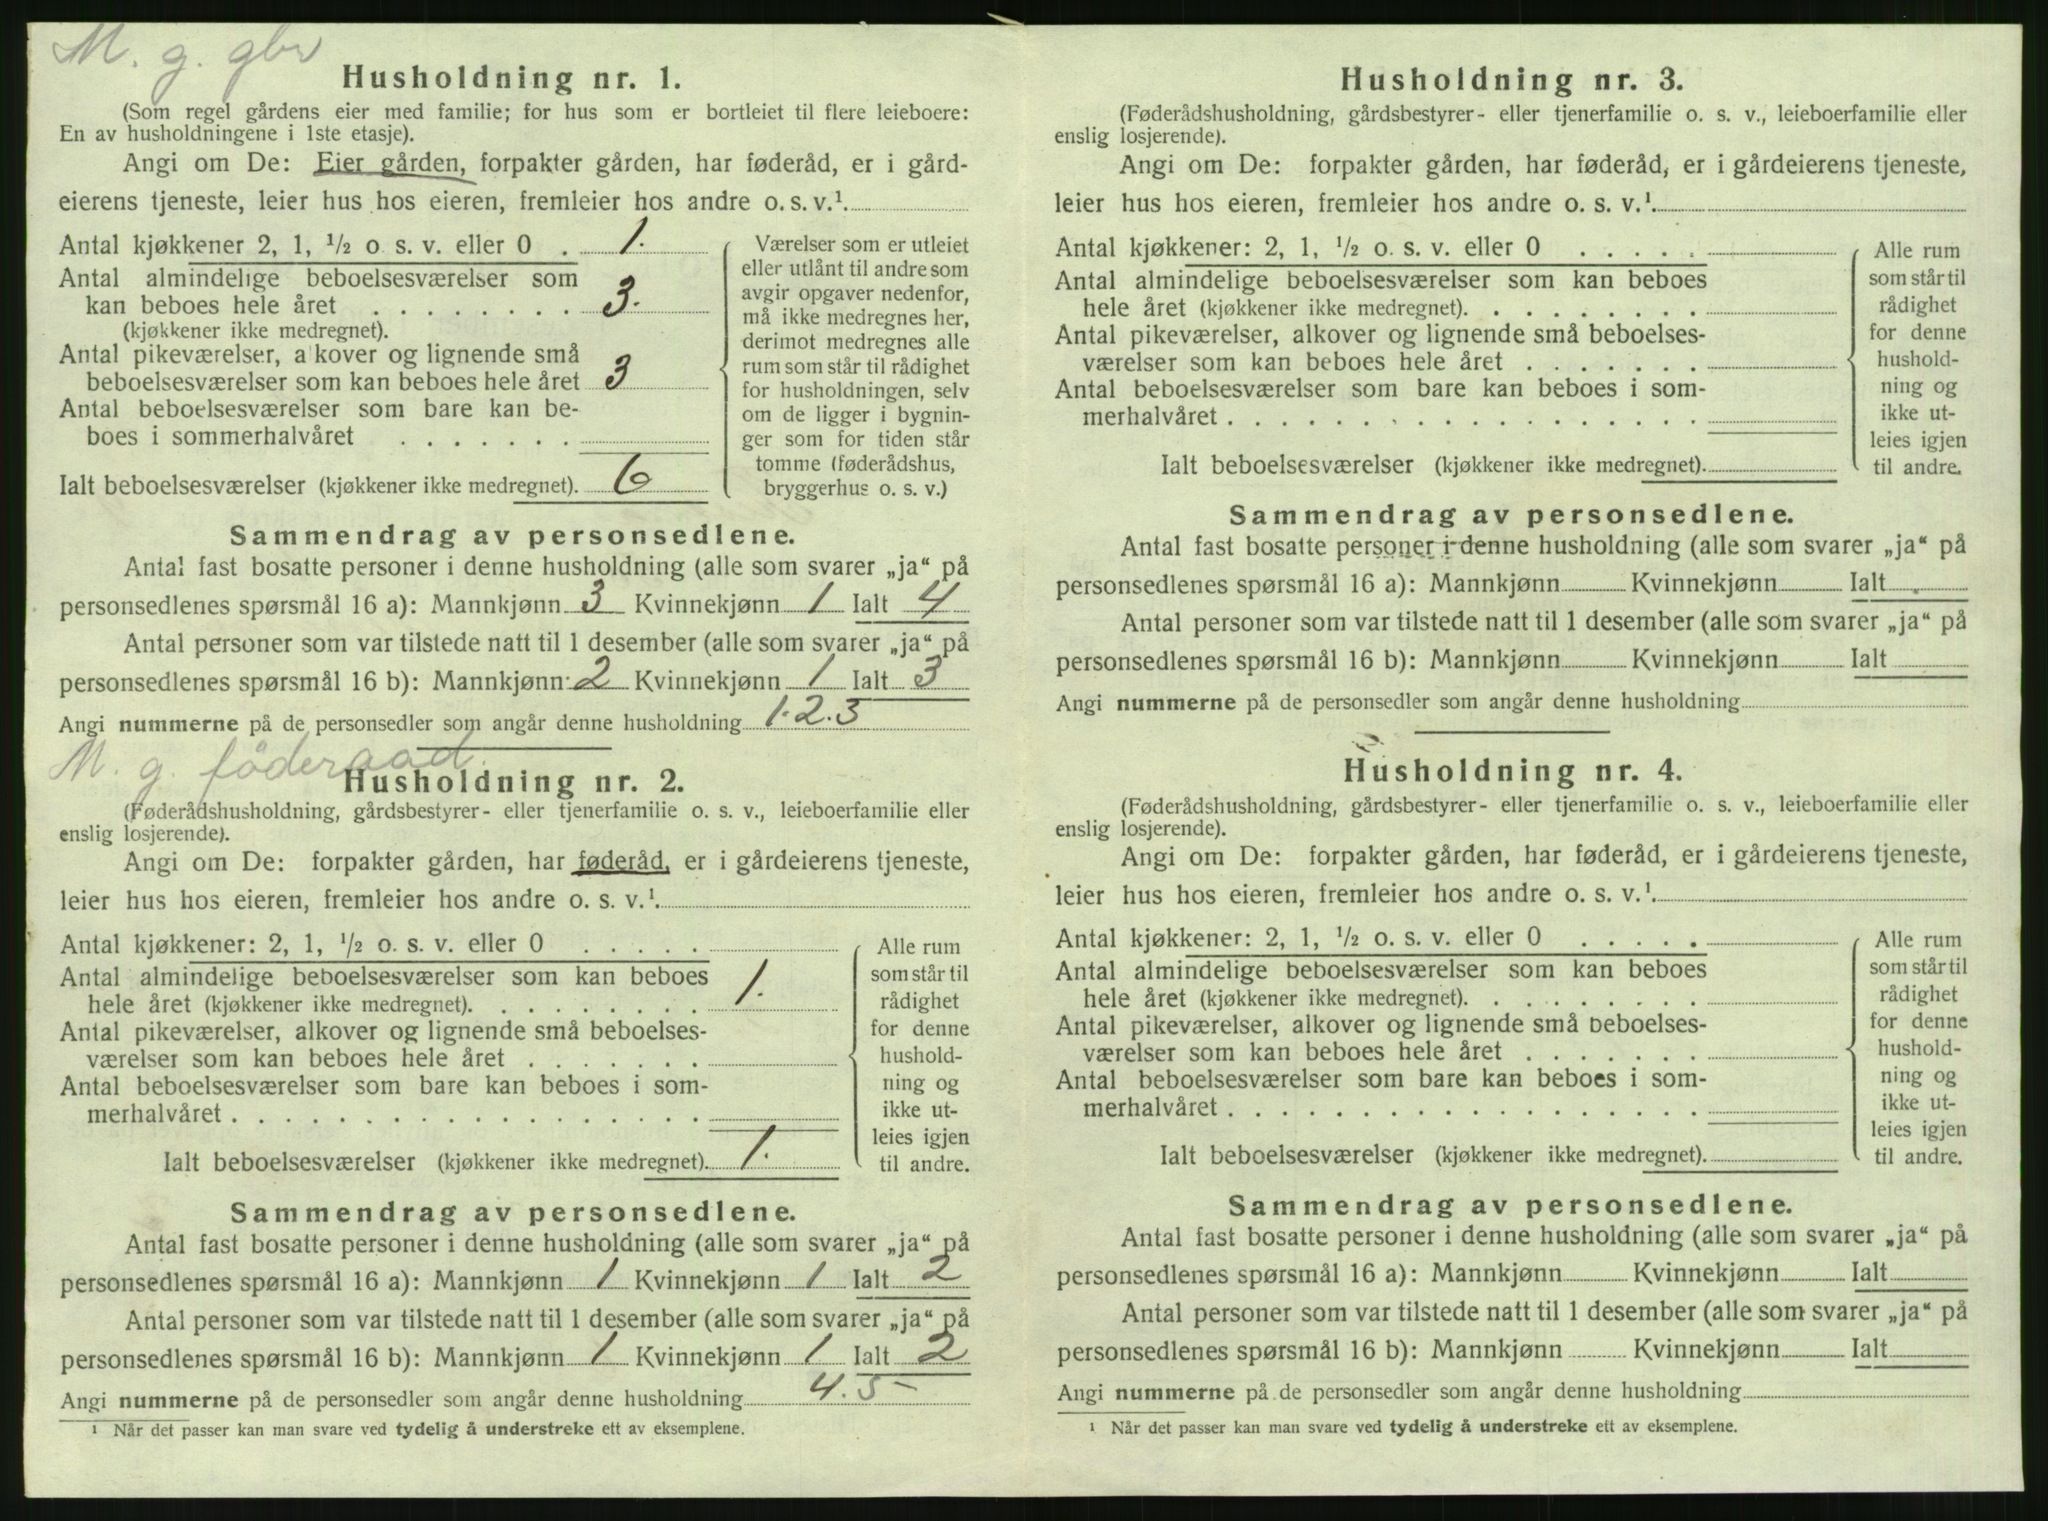 M. g. gbr
Husholdning nr. 1.
(Som regel gårdens eier med familie; for hus som er bortleiet til flere leieboere:
En av husholdningene i 1ste etasje).
Angi om De: Eier gården, forpakter gården, har føderåd, er i gård-
eierens tjeneste, leier hus hos eieren, fremleier hos andre o. s. v.¹.
Antal kjøkkener 2, 1, ½ o s. v. eller 0 . 1.
Antal almindelige beboelsesværelser som
kan beboes hele året . . . . . . . . 3.
(kjøkkener ikke medregnet).
Antal pikeværelser, a kover og lignende små
beboelsesværelser som kan beboes hele året 3
Antal beboelsesværelser som bare kan be-
boes i sommerhalvåret . . . . . . .
Ialt beboelsesværelser (kjøkkener ikke medregnet). 6
Værelser som er utleiet
eller utlånt til andre som
avgir opgaver nedenfor,
må ikke medregnes her,
derimot medregnes alle
rum som står til rådighet
for husholdningen, selv
om de ligger i bygnin-
ger som for tiden står
tomme (føderådshus,
bryggerhus o. s. v.)
Sammendrag av personsedlene.
Antal fast bosatte personer i denne husholdning (alle som svarer „ja“ på
personsedlenes spørsmål 16 a): Mannkjønn 3 Kvinnekjønn 1 Ialt 4
Antal personer som var tilstede natt til 1 desember (alle som svarer „ja“ på
personsedlenes spørsmål 16 b): Mannkjønn 2 Kvinnekjønn 1 Ialt 3
Angi nummerne på de personsedler som angår denne husholdning 1.2.3
M. g. föderaad.
Husholdning nr. 2.
(Føderådshusholdning, gårdsbestyrer- eller tjenerfamilie o. s. v., leieboerfamilie eller
enslig losjerende).
Angi om De: forpakter gården, har føderåd, er i gårdeierens tjeneste,
leier hus hos eieren, fremleier hos andre o. s. v.¹.
Antal kjøkkener: 2, 1, ½ o. s. v. eller 0 . . . . .
Antal almindelige beboelsesværelser som kan beboes
hele året (kjøkkener ikke medregnet). . . . . . . . . 1.
Antal pikeværelser, alkover og lignende små beboelses-
værelser som kan beboes hele året . . . . . . .
Antal beboelsesværelser som bare kan beboes i som-
merhalvåret . . . . . . . . . . . . . . . . . .
Ialt beboelsesværelser (kjøkkener ikke medregnet). 1.
Alle rum
som står til
rådighet
for denne
hushold-
ning og
ikke ut-
leies igjen
til andre.
Sammendrag av personsedlene.
Antal fast bosatte personer i denne husholdning (alle som svarer „ja“ på
personsedlenes spørsmål 16 a): Mannkjønn 1 Kvinnekjønn 1 Ialt 2
Antal personer som var tilstede natt til 1 desember (alle som svarer „ja“ på
personsedlenes spørsmål 16 b): Mannkjønn 1 Kvinnekjønn 1 Ialt 2
Angi nummerne på de personsedler som angår denne husholdning 4. 5-
¹ Når det passer kan man svare ved tydelig å understreke ett av eksemplene.
Husholdning nr. 3.
(Føderådshusholdning, gårdsbestyrer- eller tjenerfamilie o. s. v., leieboerfamilie eller
enslig losjerende).
Angi om De: forpakter gården, har føderåd, er i gårdeierens tjeneste,
leier hus hos eieren, fremleier hos andre o. s. v.¹.
Antal kjøkkener: 2, 1, ½ o. s. v. eller 0 . . . . .
Antal almindelige beboelsesværelser som kan beboes
hele året (kjøkkener ikke medregnet). . . . . . . . .
Antal pikeværelser, alkover og lignende små beboelses-
værelser som kan beboes hele året . . . . . . .
Antal beboelsesværelser som bare kan beboes i som-
merhalvåret . . . . . . . . . . . . . . . . . .
Ialt beboelsesværelser (kjøkkener ikke medregnet).
Alle rum
som står til
rådighet
for denne
hushold-
ning og
ikke ut-
leies igjen
til andre.
Sammendrag av personsedlene.
Antal fast bosatte personer i denne husholdning (alle som svarer „ja“ på
personsedlenes spørsmål 16 a): Mannkjønn Kvinnekjønn Ialt
Antal personer som var tilstede natt til 1 desember (alle som svarer „ja“ på
personsedlenes spørsmål 16 b): Mannkjønn Kvinnekjønn Ialt
Angi nummerne på de personsedler som angår denne husholdning
Husholdning nr. 4.
(Føderådshusholdning, gårdsbestyrer- eller tjenerfamilie o. s. v., leieboerfamilie eller
enslig losjerende).
Angi om De: forpakter gården, har føderåd, er i gårdeierens tjeneste,
leier hus hos eieren, fremleier hos andre o. s. v.¹.
Antal kjøkkener: 2, 1, ½ o. s. v. eller 0 . . . . .
Antal almindelige beboelsesværelser som kan beboes
hele året (kjøkkener ikke medregnet). . . . . . . . .
Antal pikeværelser, alkover og lignende små beboelses-
værelser som kan beboes hele året . . . . . . .
Antal beboelsesværelser som bare kan beboes i som-
merhalvåret . . . . . . . . . . . . . . . . . .
Ialt beboelsesværelser (kjøkkener ikke medregnet).
Alle rum
som står til
rådighet
for denne
hushold-
ning og
ikke ut-
leies igjen
til andre.
Sammendrag av personsedlene.
Antal fast bosatte personer i denne husholdning (alle som svarer „ja“ på
personsedlenes spørsmål 16 a): Mannkjønn Kvinnekjønn Ialt
Antal personer som var tilstede natt til 1 desember (alle som svarer „ja“ på
personsedlenes spørsmål 16 b): Mannkjønn Kvinnekjønn Ialt
Angi nummerne på de personsedler som angår denne husholdning
¹ Når det passer kan man svare ved tydelig å understreke ett av eksemplene.